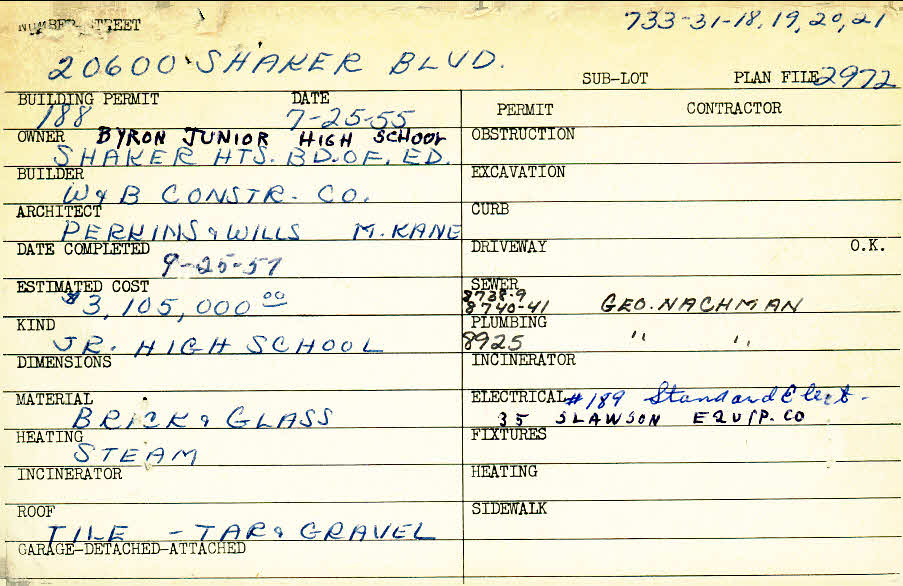 NUMBER-STREET 733-31-18,19,20,21
20600 SHAKER BLVD.
SUB-LOT PLAN FILE 2972
BUILDING PERMIT DATE
188 7-25-55
PERMIT CONTRACTOR
OWNER BYRON JUNIOR HIGH SCHOOL
SHAKER HTS. BD. OF. ED.
OBSTRUCTION
BUILDER
W & B CONSTR. CO.
EXCAVATION
ARCHITECT
PERKINS & WILLS M. KANE
CURB
DATE COMPLETED
9-25-57
DRIVEWAY O.K.
ESTIMATED COST
$3,105,000.00
SEWER
8738-9
8740-41 GEO. NACHMAN
KIND
JR. HIGH SCHOOL
PLUMBING
8925 " "
DIMENSIONS
INCINERATOR
MATERIAL
BRICK & GLASS
ELECTRICAL #189 Standard Elect.
35 SLAWSON EQUIP. CO
HEATING
STEAM
FIXTURES
INCINERATOR
HEATING
ROOF
TILE - TAR & GRAVEL
SIDEWALK
GARAGE-DETACHED-ATTACHED